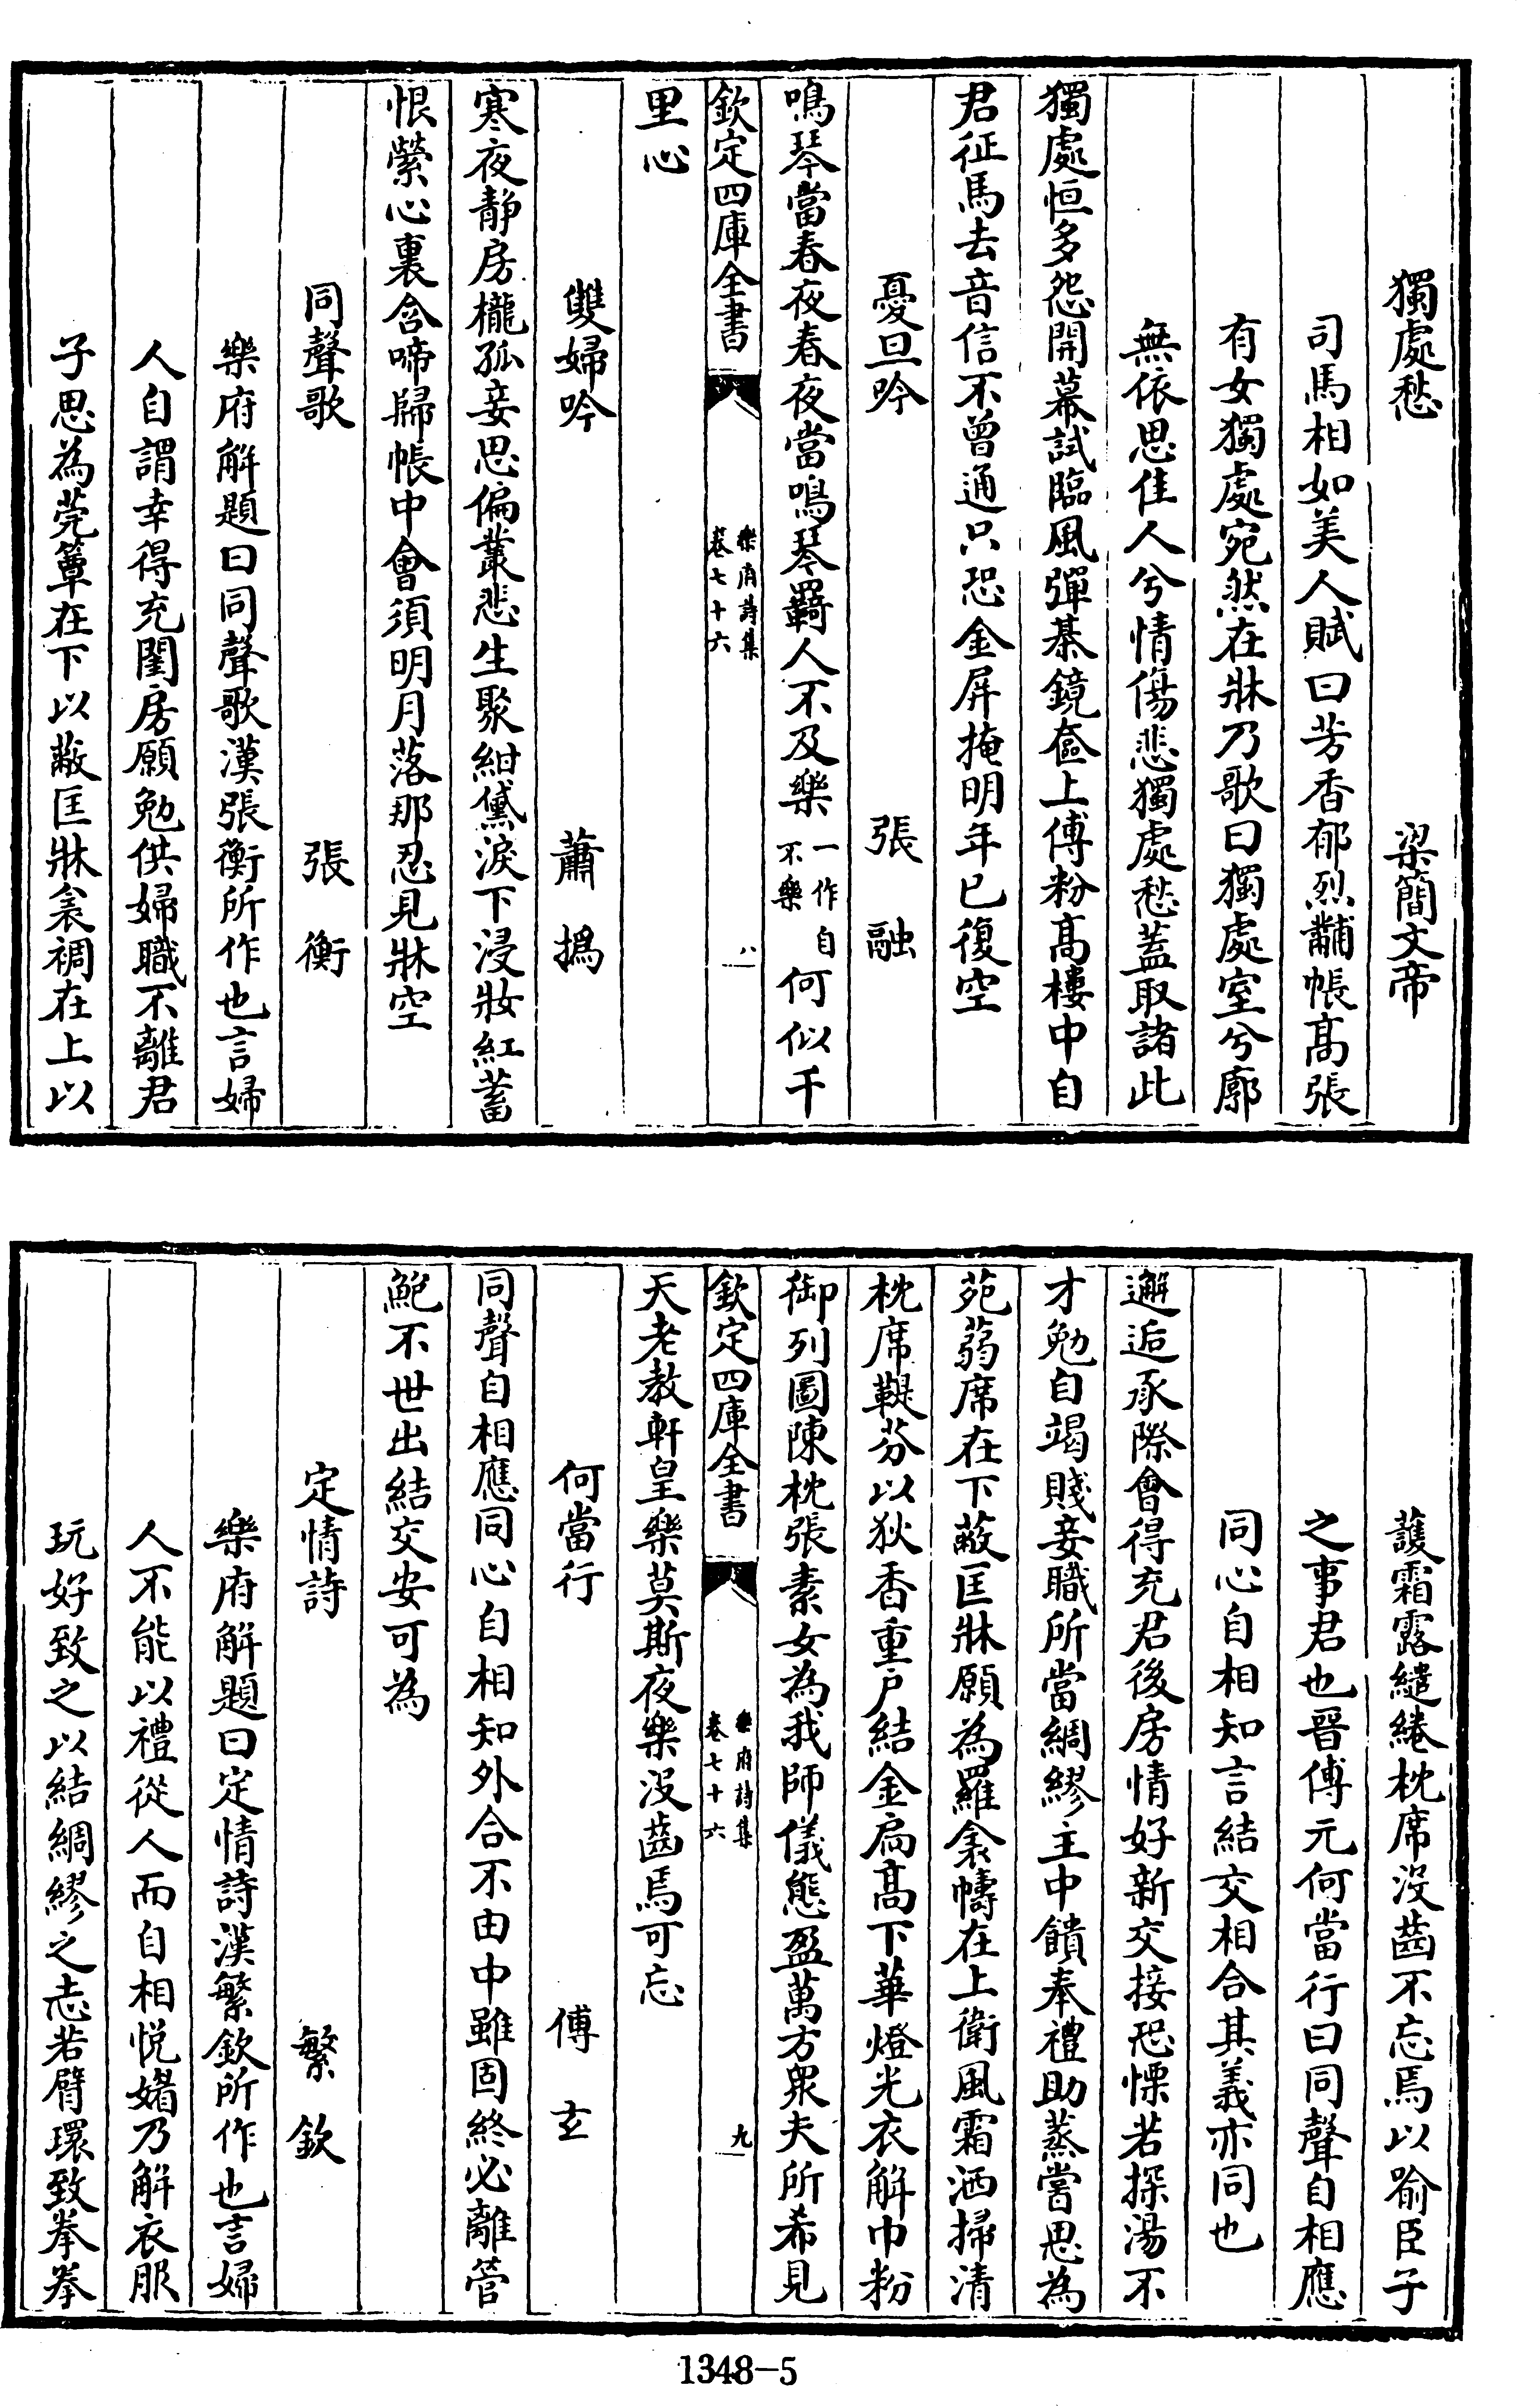 獨處愁　梁簡文帝
司馬相如美人賦曰芳香郁烈黼帳髙張
有女獨處宛然在牀乃歌曰獨處室兮廓
無依思佳人兮情傷悲獨處愁葢取諸此
獨處恒多怨開幕試臨風彈棊鏡奩上傅粉髙樓中自
君征馬去音信不曽通只恐金屏掩明年已復空
憂旦吟　張融
鳴琴當春夜春夜當鳴琴羇人不及樂一作自不樂何似千
欽定四庫全書　樂府詩集卷七十六　八
里心
雙婦吟　蕭撝
寒夜靜房櫳孤妾思偏叢悲生聚紺黛淚下浸妝紅蓄
恨縈心裏含啼歸帳中會須明月落那忍見牀空
同聲歌　張衡
樂府解題曰同聲歌漢張衡所作也言婦
人自謂幸得充閨房願勉供婦職不離君
子思為莞簟在下以蔽匡牀衾裯在上以
䕶霜露繾綣枕席沒齒不忘焉以喻臣子
之事君也晉傅元何當行曰同聲自相應
同心自相知言結交相合其義亦同也
邂逅承際會得充君後房情好新交接恐慄若探湯不
才勉自竭賤妾職所當綢繆主中饋奉禮助蒸嘗思為
苑蒻席在下蔽匡牀願為羅衾幬在上衛風霜洒掃清
枕席鞮芬以狄香重戶結金扃髙下華燈光衣解巾粉
御列圖陳枕張素女為我師儀態盈萬方衆夫所希見
欽定四庫全書　樂府詩集卷七十六　九
天老教軒皇樂莫斯夜樂沒齒焉可忘
何當行　傅玄
同聲自相應同心自相知外合不由中雖固終必離管
鮑不世出結交安可為
定情詩　繁欽
樂府解題曰定情詩漢繁欽所作也言婦
人不能以禮從人而自相悅媚乃解衣服
玩好致之以結綢繆之志若臂環致拳拳
1348-5